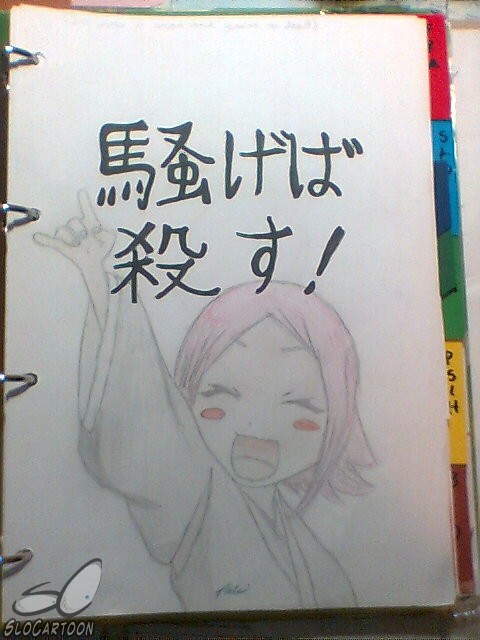 騒げば
殺す!
PSIH
SLOCARTOON